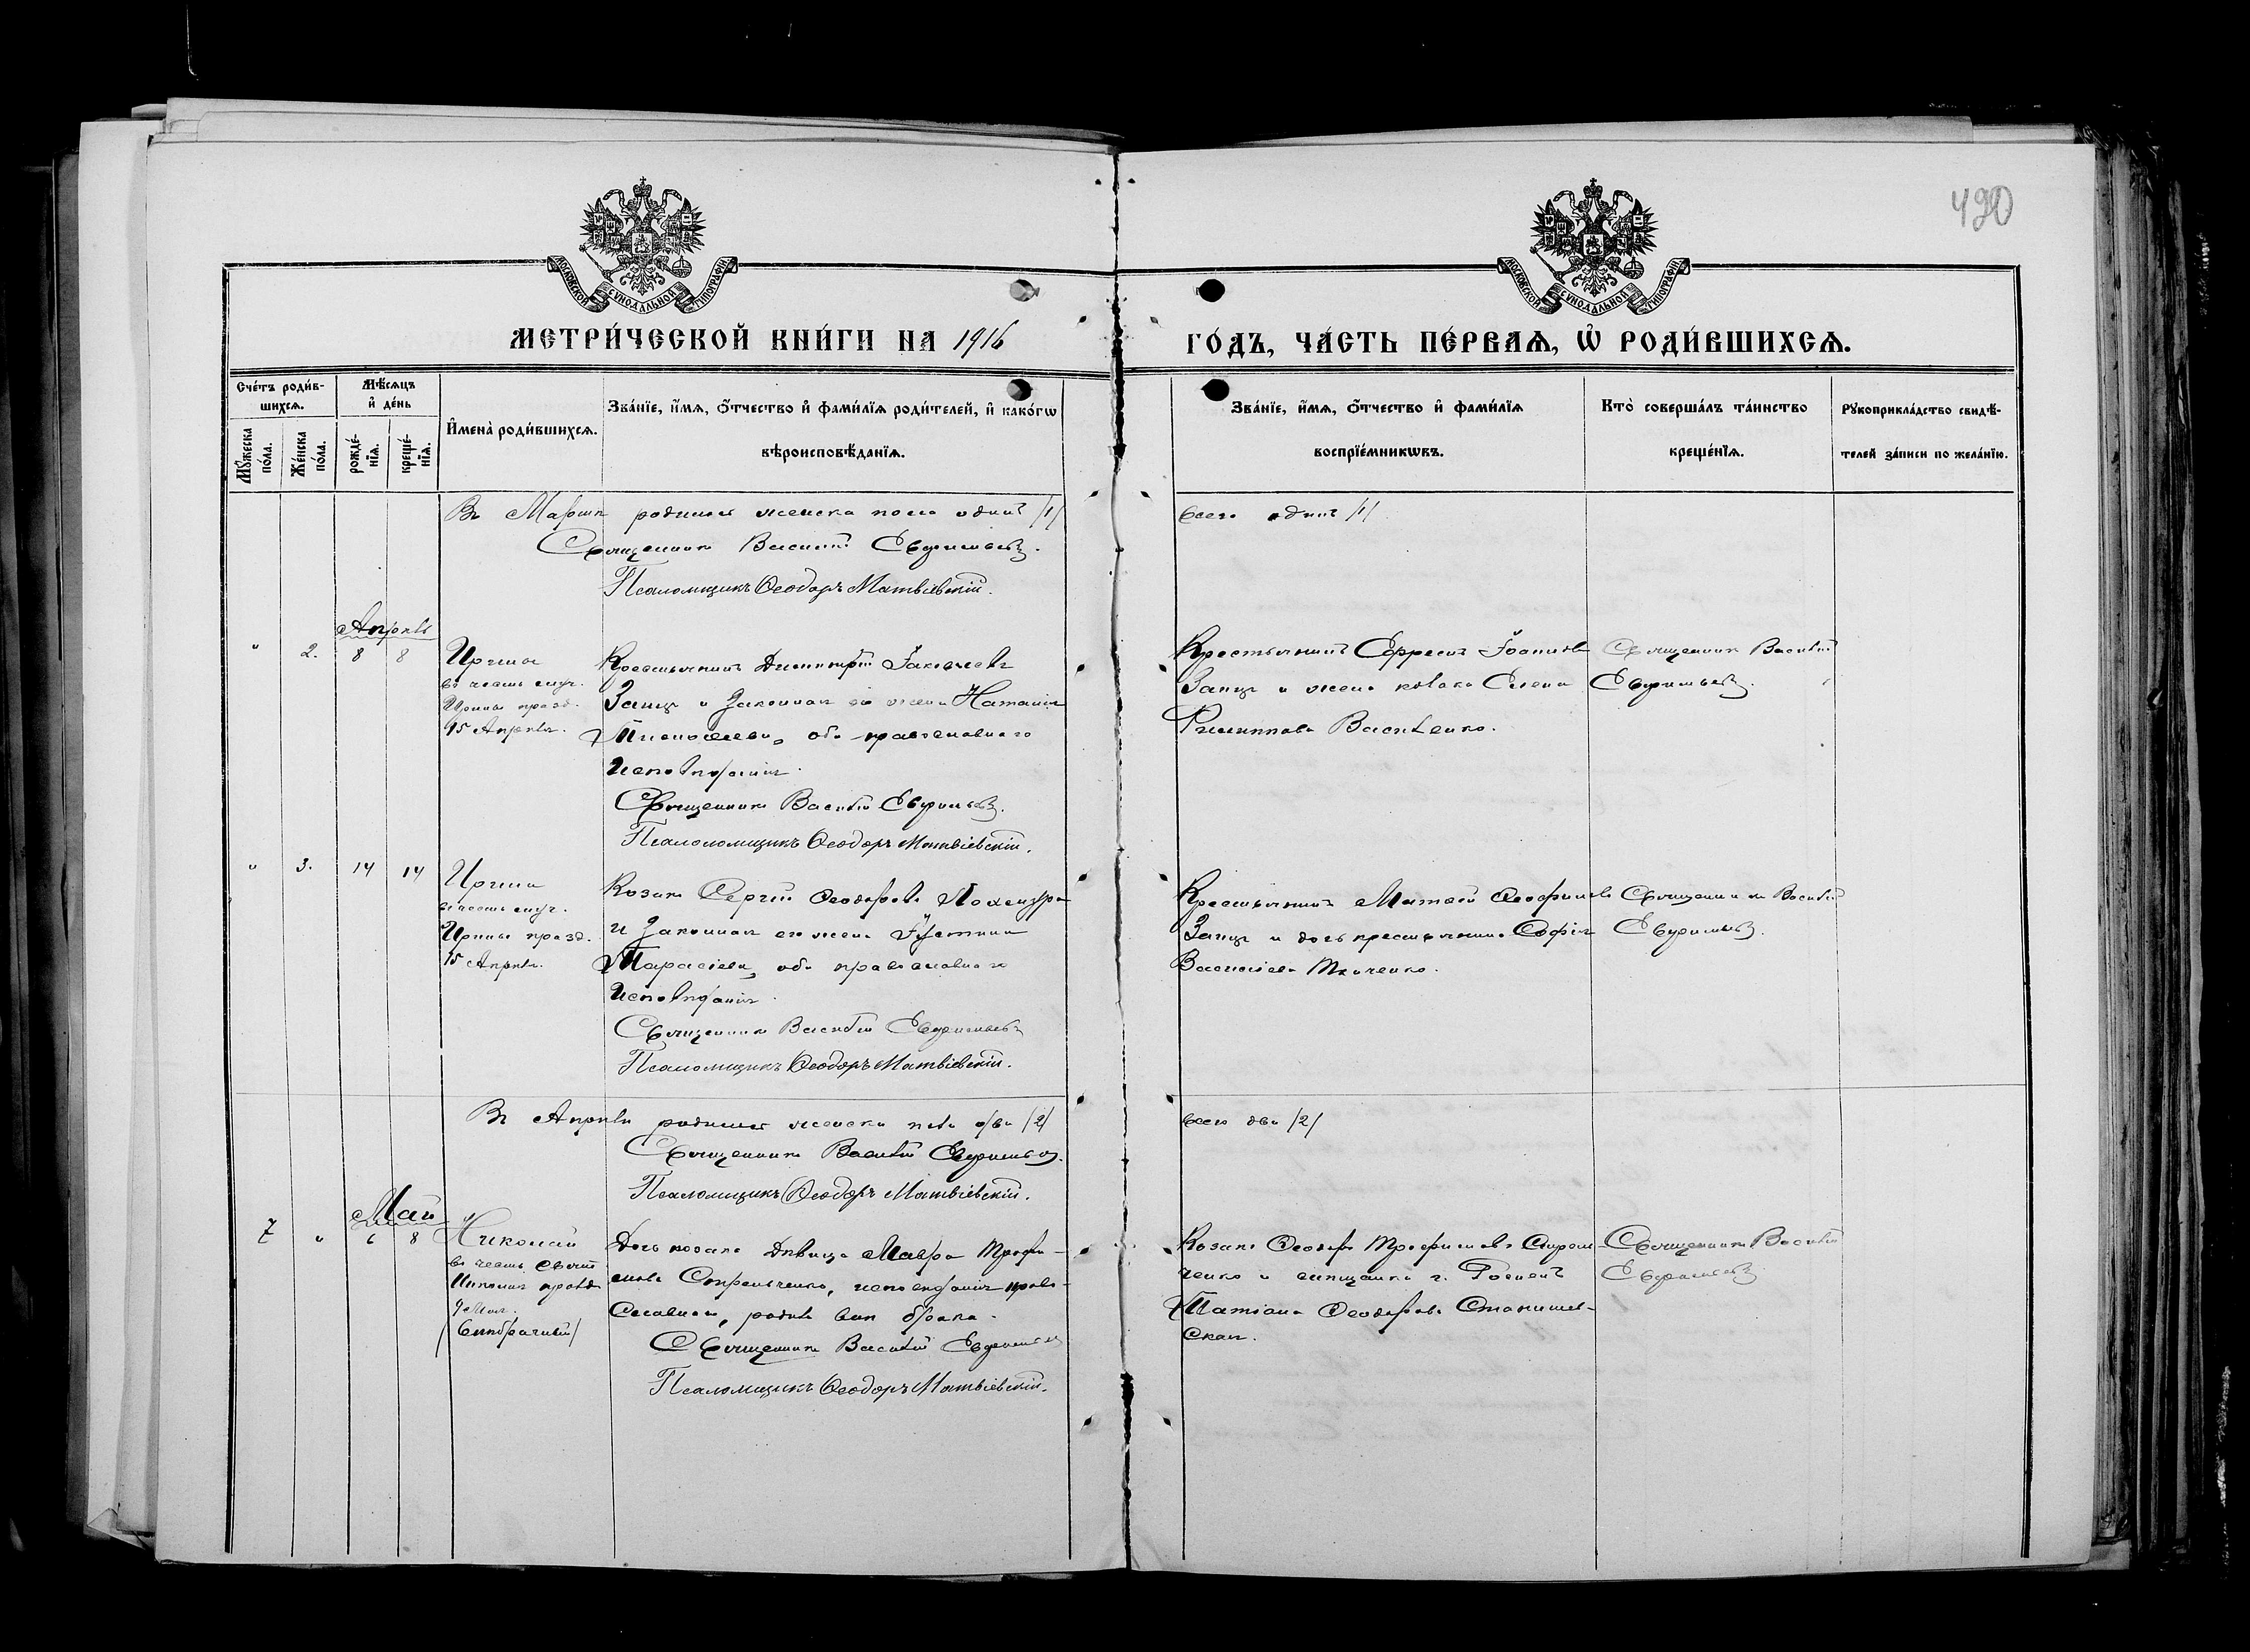 420
МОСКОВСКОЙ СѴНОДАЛЬНОЙ ТИПОГРАФІИ
МОСКОВСКОЙ СѴНОДАЛЬНОЙ ТИПОГРАФІИ
МЕТРИ́ЧЕСКОЙ КНИ́ГИ НА 1916
ГО́ДЪ, ЧА́СТЬ ПЕ́РВАѦ, Ѿ РОДИ́ВШИХСѦ.
Сче́тъ роди́в-
шихсѧ.
Мѹ́жеска по́ла.
Же́нска по́ла.
Мѣ́сѧцъ
и҆ де́нь
рожде́-
нїѧ.
креще́-
нїѧ.
И҆мена̀ роди́вшихсѧ.
Зва́нїе, и҆́мѧ, ѻ҆́тчество и҆ фами́лїѧ роди́телей, и҆ како́гѡ
вѣроисповѣ́данїѧ.
Зва́нїе, и҆́мѧ, ѻ҆́тчество и҆ фами́лїѧ
воспрїе́мникѡвъ.
Кто̀ соверша́лъ та́инство
креще́нїѧ.
Рꙋкоприкла́дство свидѣ́-
телей за́писи по жела́нїю.
Въ Мартѣ родился женска пола одинъ /1/
всего одинъ /1/
Священникъ Василій Евфимьевъ.
Псаломщикъ Ѳеодоръ Матвіевскій.
Апрѣль
" 2. 8 8
Ирина
въ честь муч.
Ирины празд.
15 Апрѣля.
Крестьянинъ Димитрій Іаковлевъ
Заяцъ и законная его жена Наталія
обa православнаго
исповѣданія.
Священникъ Василій Евфимьевъ.
Псаломщикъ Ѳеодоръ Матвіевскій.
Крестьянинъ Ефремъ Іоанновъ
Заяцъ и жена козака Елена
Филиппова Василенко.
Священникъ Василій
Евфимьевъ.
" 3. 14 14
Ирина
въ честь муч.
Ирины празд.
15 Апрѣля.
Козакъ Сергій Ѳеодоровъ
и законная его жена Іустинія
Тарасіева, оба православнаго
исповѣданія.
Священникъ Василій Евфимьевъ
Псаломщикъ Ѳеодоръ Матвіевскій.
Крестьянинъ Матѳей
Заяцъ и дочь крестьянина Софія
Васильева Ткаченко.
Священникъ Василій
Евфимьевъ.
Въ Апрѣлѣ родилися женска пола два /2/
всего два /2/
Священникъ Василій Евфимьевъ.
Псаломщикъ Ѳеодоръ Матвіевскій.
Май
7 " 6 8
Николай
въ честь Святит.
Николая празд.
9 Мая.
/внѣбрачный/
Дочь козака дѣвица Мавра Трофи-
мова Стрельченко, исповѣданія право-
славнаго, родила внѣ брака.
Священникъ Василій Евфимьевъ
Псаломщикъ Ѳеодоръ Матвіевскій.
Козакъ Ѳеодоръ Трофимовъ Стрель-
ченко и мѣщанка г.
Татіана Ѳеодорова Станишев-
ская.
Священникъ Василій
Евфимьевъ